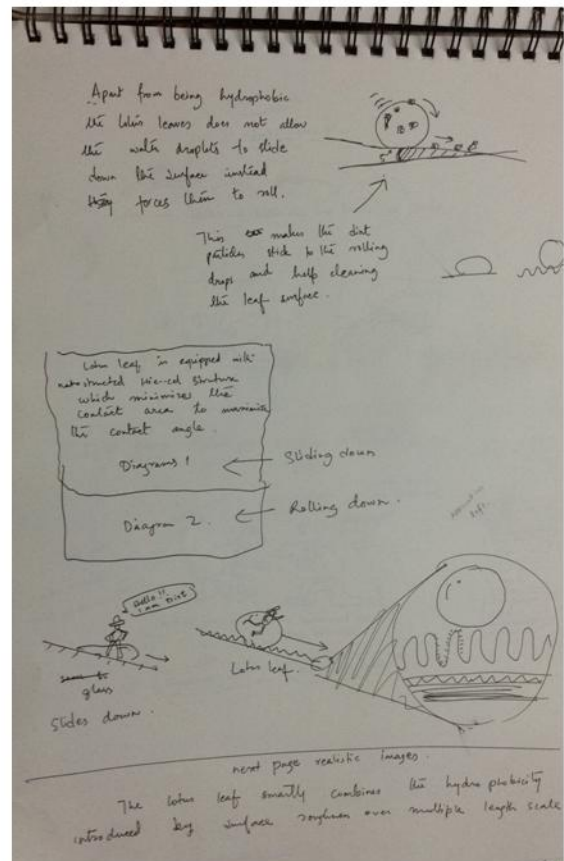 Apart from being hydrophobic
the lotus leaves does not allow
the water droplets to slide
down the surface instead
forces them to roll.
This makes the dirt
particles stick to the rolling
drops and help cleaning
the leaf surface.
Lotus leaf is equipped with
structure
which minimizes the
contact area to maximize
the contact angle.
Diagrams 1
Sliding down
Diagram 2.
Rolling down.
Hello!!
I am Dirt
glass
Slides down.
Lotus leaf.
next page realistic images.
The lotus leaf smartly combines the hydrophobicity
introduced by surface roughness over multiple length scale